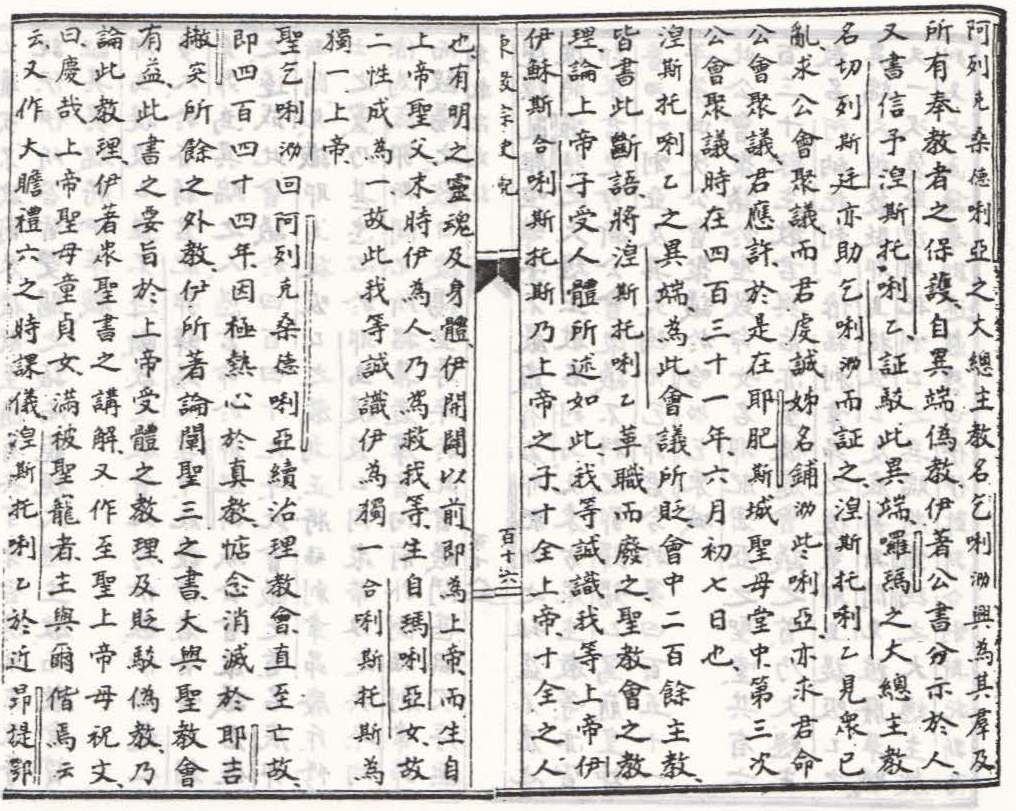 阿列克桑德唎亞之大總主教名乞唎泐興為其羣及
所有奉教者之保護自異端偽教伊著公書分示於人
又書信予湼斯托唎乙証駁此異端囉瑪之大總主教
名切列斯廷亦助乞唎泐而証之湼斯托唎乙見衆已
亂求公會聚議而君虔誠姊名鋪泐些唎亞亦求君命
公會聚議君應許於是在耶肥斯城聖母堂中第三次
公會聚議時在四百三十一年六月初七日也
湼斯托唎乙之異端為此會議所貶會中二百餘主教
皆書此斷語將湼斯托唎乙革職而廢之聖教會之教
理論上帝子受人體所述如此我等誠識我等上帝伊
伊穌斯合唎斯托斯乃上帝之子十全上帝十全之人
東教宗史記
百十六
也有明之靈魂及身體伊開闢以前即為上帝而生自
上帝聖父末時伊為人乃為救我等生自瑪唎亞女故
二性成為一故此我等誠識伊為獨一合唎斯托斯為
獨一上帝
聖乞唎泐回阿列克桑德唎亞續治理教會直至亡故
即四百四十四年因極熱心於真教惦念消滅於耶吉
撇突所餘之外教伊所著論闡聖三之書大與聖教會
有益此書之要旨於上帝受體之教理及貶駁偽教乃
論此教理伊著衆聖書之講解又作至聖上帝母祝文
曰慶哉上帝聖母童貞女滿被聖寵者主與爾偕焉云
云又作大瞻禮六之時課儀湼斯托唎乙於近昴堤鄂